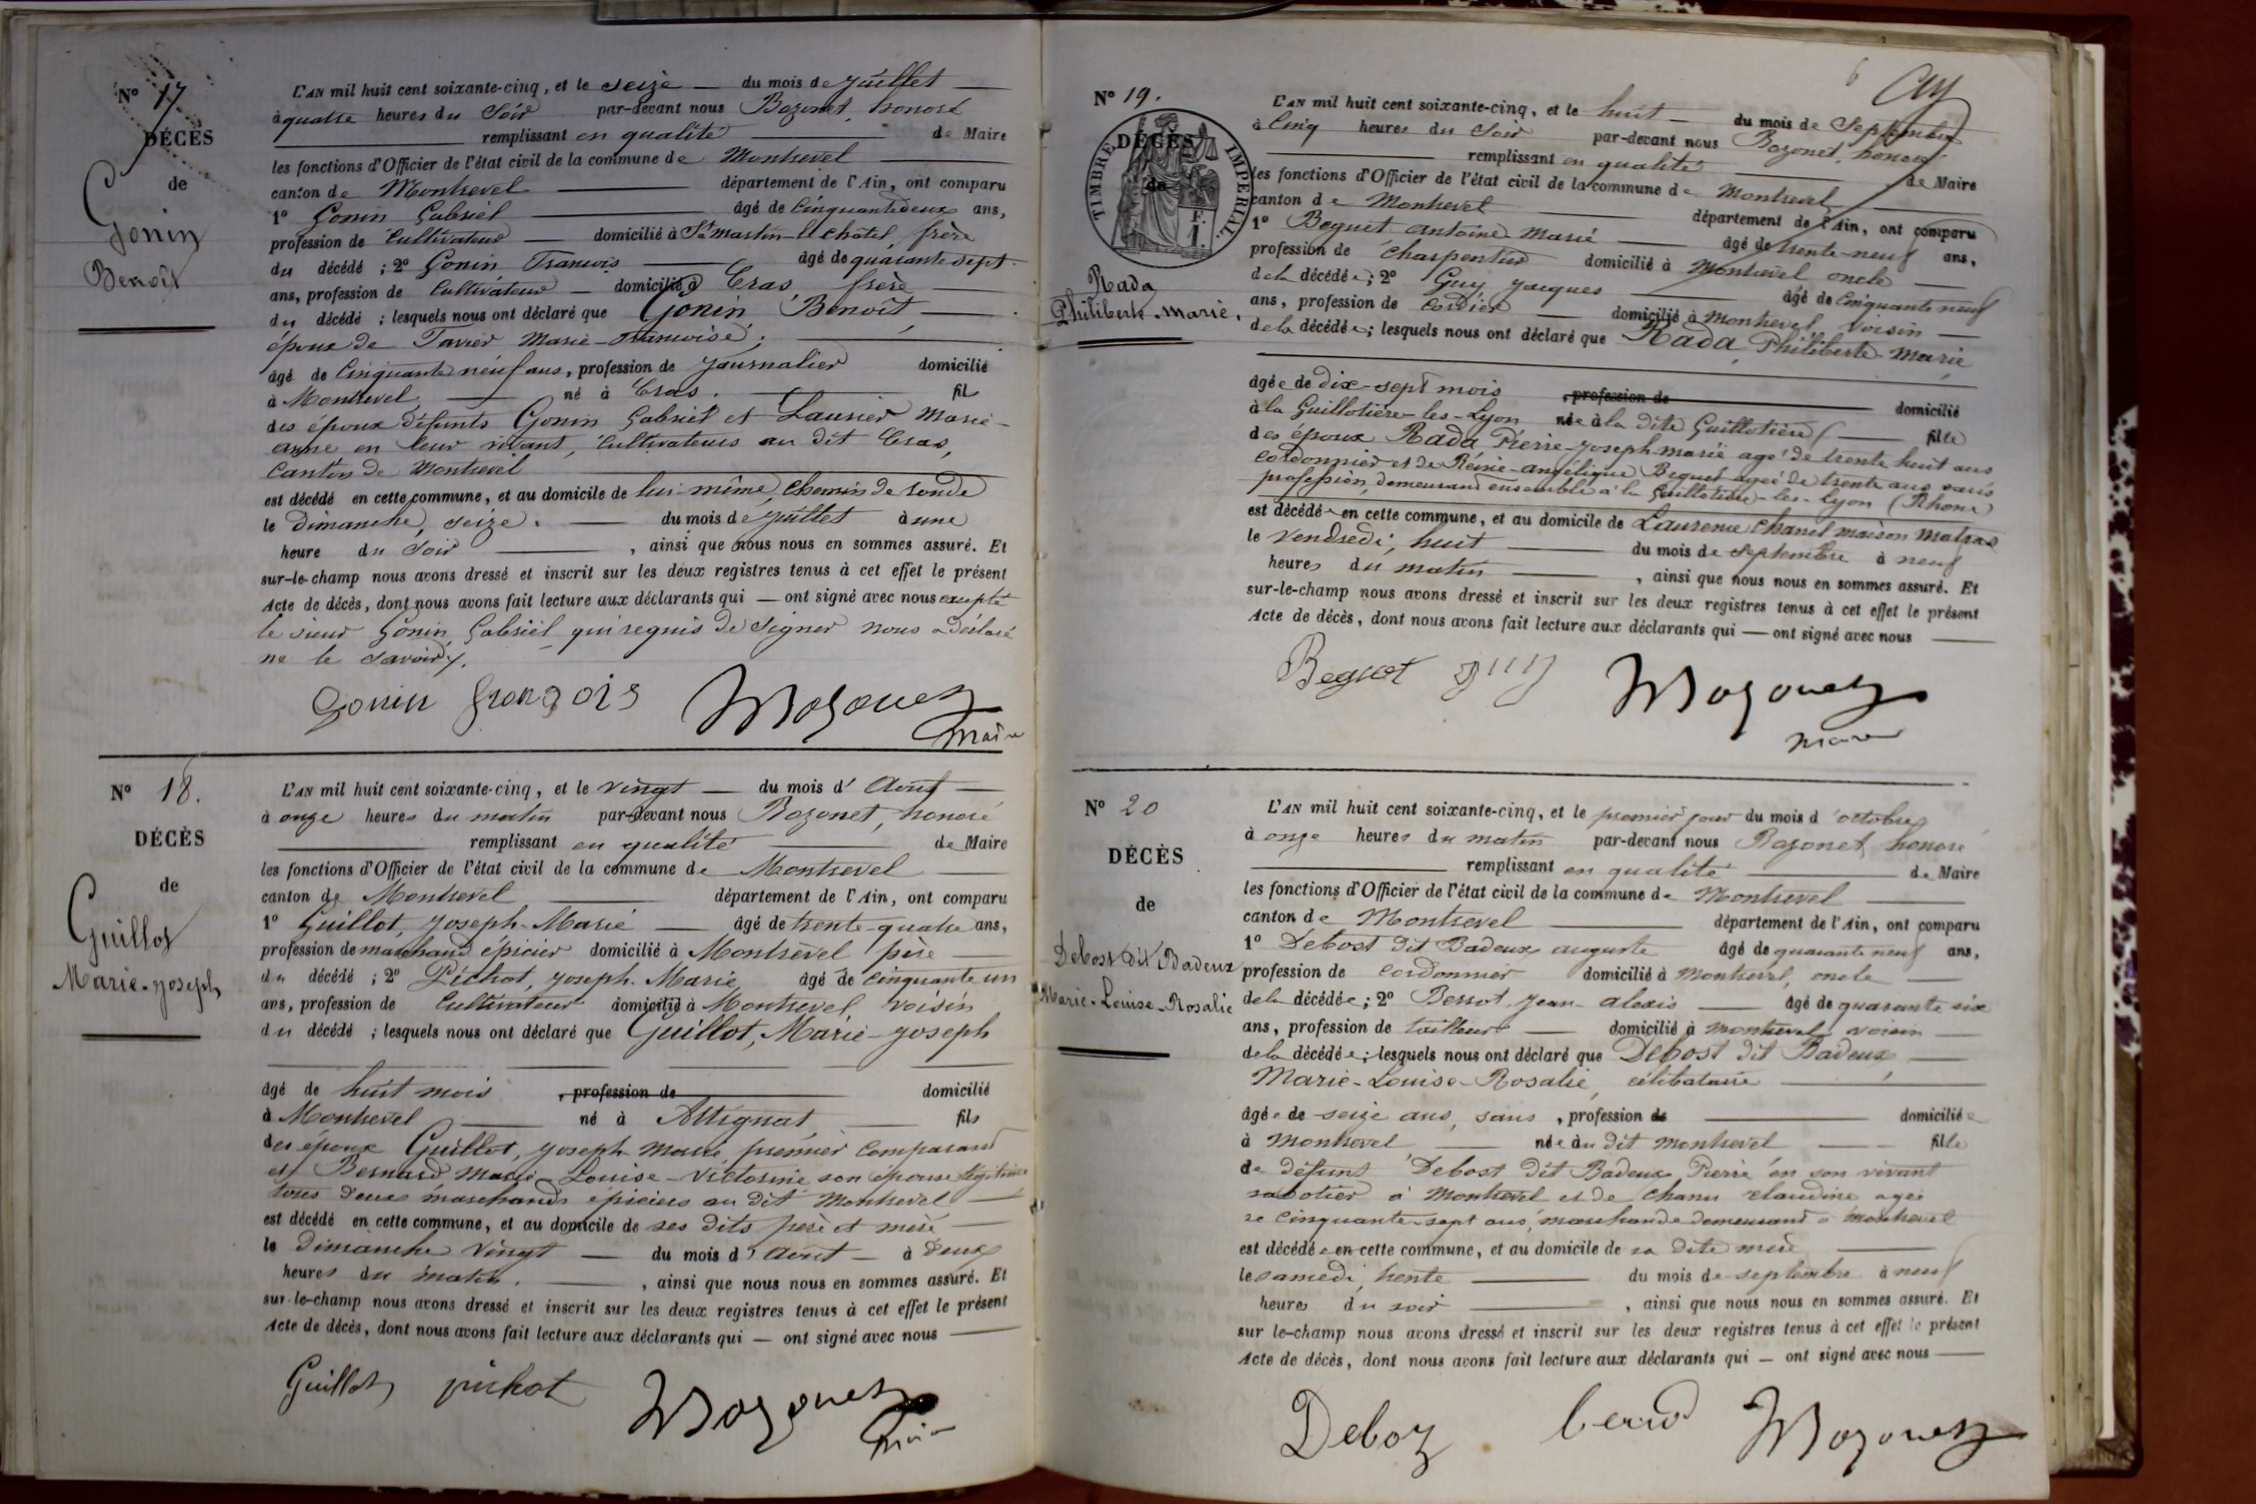 N° 17
DÉCÈS
de
Gonin
Benoît
L'AN mil huit cent soixante-cinq, et le seize du mois de juillet
à quatre heures du soir par-devant nous Bozonet, honoré
remplissant en qualité de Maire
les fonctions d'Officier de l'état civil de la commune de Montrevel
canton de Montrevel département de l'Ain, ont comparu
1° Gonin Gabriel âgé de cinquante deux ans,
profession de cultivateur domicilié à St martin-le-châtel, frère
du décédé ; 2° Gonin François âgé de quarante sept
ans, profession de cultivateur domicilié à Cras frère
du décédé ; lesquels nous ont déclaré que Gonin Benoît
époux de Tavier Marie-Françoise,
âgé de cinquante neuf ans, profession de journalier domicilié
à Montrevel né à Cras. fils
des époux défunts Gonin Gabriel et Laurier Marie-
anne en leur vivant, cultivateurs au dit Cras,
canton de Montrevel
est décédé en cette commune, et au domicile de lui-même, chemin de ronde
le Dimanche, seize. du mois de juillet à une
heure du soir , ainsi que nous nous en sommes assuré. Et
sur-le-champ nous avons dressé et inscrit sur les deux registres tenus à cet effet le présent
Acte de décès, dont nous avons fait lecture aux déclarants qui — ont signé avec nous excepté
le sieur Gonin Gabriel qui requis de signer nous a déclaré
ne le savoir.
Gonin françois Bozonet
Maire
N° 18.
DÉCÈS
de
Guillot
Marie-joseph
L'AN mil huit cent soixante-cinq, et le vingt du mois d' Août
à onze heures du matin par-devant nous Bozonet, honoré
remplissant en qualité de Maire
les fonctions d'Officier de l'état civil de la commune de Montrevel
canton de Montrevel département de l'Ain, ont comparu
1° Guillot, joseph-Marie âgé de trente-quatre ans,
profession de marchand épicier domicilié à Montrevel père
du décédé ; 2° Pichot, joseph-Marie âgé de cinquante un
ans, profession de cultivateur domicilié à Montrevel, voisin
du décédé ; lesquels nous ont déclaré que Guillot, Marie-joseph
âgé de huit mois , profession de domicilié
à Montrevel né à Attignat fils
des époux Guillot, joseph marie premier comparant
et Bernard Marie-Louise-Victorine son épouse légitime
tous deux marchands épiciers au dit Montrevel
est décédé en cette commune, et au domicile de ses dits père et mère
le dimanche vingt du mois d' août à deux
heures du matin. , ainsi que nous nous en sommes assuré. Et
sur-le-champ nous avons dressé et inscrit sur les deux registres tenus à cet effet le présent
Acte de décès, dont nous avons fait lecture aux déclarants qui — ont signé avec nous
Guillot pichot Bozonet
Maire
6
N° 19.
DÉCÈS
de
TIMBRE IMPÉRIAL
Rada
Philiberte-Marie.
L'AN mil huit cent soixante-cinq, et le huit du mois de Septembre
à cinq heures du soir par-devant nous Bozonet, honoré
remplissant en qualité de Maire
les fonctions d'Officier de l'état civil de la commune de Montrevel
canton de Montrevel département de l'Ain, ont comparu
1° Beguet antoine marie âgé de trente-neuf ans,
profession de charpentier domicilié à Montrevel oncle
de la décédée ; 2° Guy jacques âgé de cinquante neuf
ans, profession de cordier domicilié à Montrevel, voisin
de la décédée ; lesquels nous ont déclaré que Rada Philiberte-Marie
âgée de dix-sept mois , profession de domicilié
à la Guillotière-les-Lyon née à la dite Guillotière fille
des époux Rada Pierre-joseph-marie agé de trente huit ans
cordonnier et de Reine-angélique Beguet agée de trente ans sans
profession, demeurant ensemble à la Guillotière-les-Lyon (Rhône)
est décédée en cette commune, et au domicile de Laurence Chanel maison Matras
le Vendredi, huit du mois de septembre à neuf
heures du matin , ainsi que nous nous en sommes assuré. Et
sur-le-champ nous avons dressé et inscrit sur les deux registres tenus à cet effet le présent
Acte de décès, dont nous avons fait lecture aux déclarants qui — ont signé avec nous
Beguet guy Bozonet
Maire
N° 20
DÉCÈS
de
Debost dit Badeux
Marie-Louise-Rosalie
L'AN mil huit cent soixante-cinq, et le premier jour du mois d' octobre
à onze heures du matin par-devant nous Bozonet, honoré
remplissant en qualité de Maire
les fonctions d'Officier de l'état civil de la commune de Montrevel
canton de Montrevel département de l'Ain, ont comparu
1° Debost dit Badeux auguste âgé de quarante neuf ans,
profession de cordonnier domicilié à Montrevel, oncle
de la décédée ; 2° Berrot jean-alexis âgé de quarante six
ans, profession de tailleur domicilié à Montrevel, voisin
de la décédée ; lesquels nous ont déclaré que Debost dit Badeux
Marie-Louise-Rosalie, célibataire
âgée de seize ans, sans , profession de domiciliée
à Montrevel née au dit Montrevel fille
de défunt Debost dit Badeux Pierre en son vivant
sabotier à Montrevel et de Chanu claudine agée
de cinquante-sept ans, marchande demeurant à Montrevel
est décédée en cette commune, et au domicile de sa dite mère
le samedi, trente du mois de septembre à neuf
heures du soir , ainsi que nous nous en sommes assuré. Et
sur le-champ nous avons dressé et inscrit sur les deux registres tenus à cet effet le présent
Acte de décès, dont nous avons fait lecture aux déclarants qui — ont signé avec nous
Deboz Bozonet